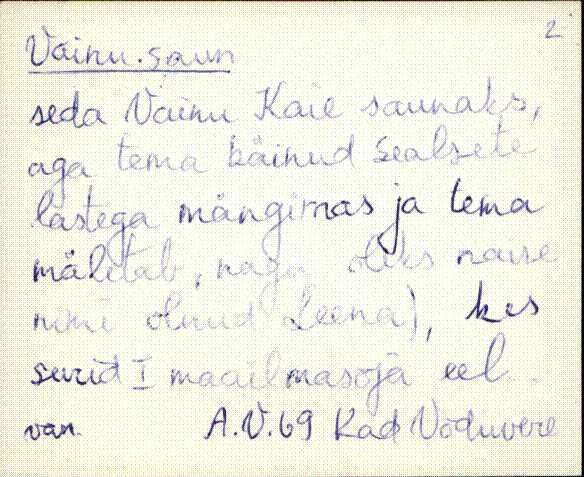 2
Vainu-saun
seda Vainu Kaie saunaks,
aga tema käinud sealsete
lastega mängimas ja tema
mäletab, nagu oleks naise
nimi olnud Leena), kes
surid I maailmasõja eel.
van. A.V.69 Kad Võduvere